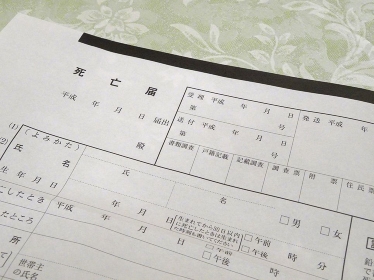 死亡届
平成　年　月　日 届出
殿
受理 平成　年　月　日
第　号
発送 平成　年
送付 平成　年　月　日
第　号
書類調査 戸籍記載 記載調査 調査票 附票 住民票
(1)
(2)
（よみかた）
氏名
氏
名
□男 □女
生年月日
平成　年　月　日
生まれてから30日以内に死亡したときは生まれた時刻も書いてください
□午前 □午後 時 分
こしたとき
平成　年　月　日
□午前
□午後
したところ
所
世帯主
の氏名